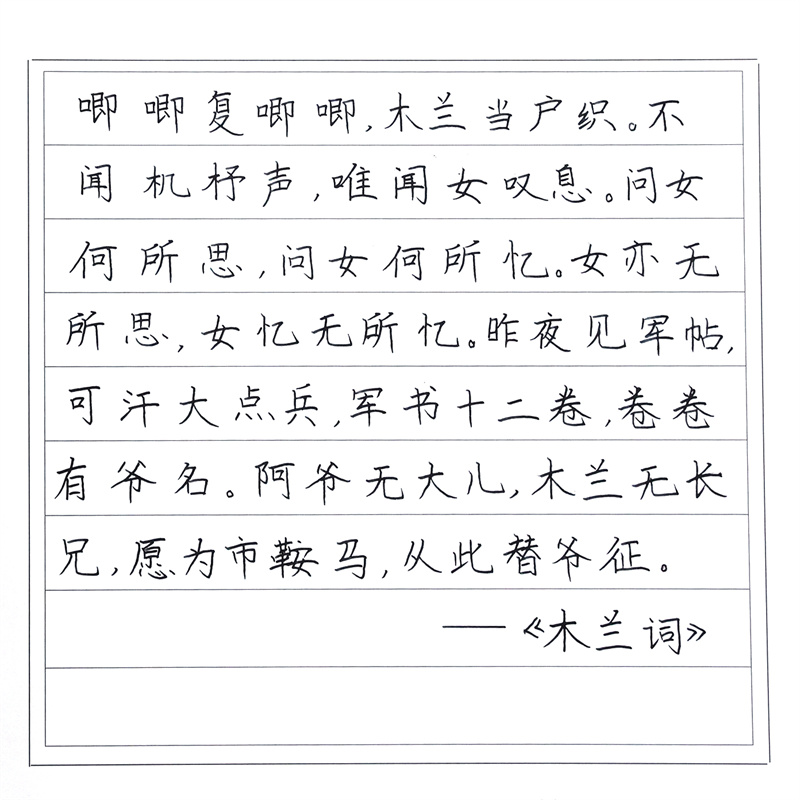 唧唧复唧唧,木兰当户织。不
闻机杼声,唯闻女叹息。问女
何所思,问女何所忆。女亦无
所思,女忆无所忆。昨夜见军帖,
可汗大点兵,军书十二卷,卷卷
有爷名。阿爷无大儿,木兰无长
兄,愿为市鞍马,从此替爷征。
——《木兰词》